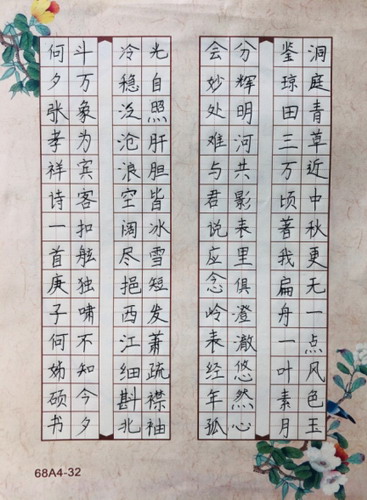 洞庭青草近中秋更无一点风色玉
鉴琼田三万顷著我扁舟一叶素月
分辉明河共影表里俱澄澈悠然心
会妙处难与君说应念岭表经年孤
光自照肝胆皆冰雪短发萧疏襟袖
冷稳泛沧浪空阔尽挹西江细斟北
斗万象为宾客扣舷独啸不知今夕
何夕张孝祥诗一首庚子何姊硕书
68A4-32